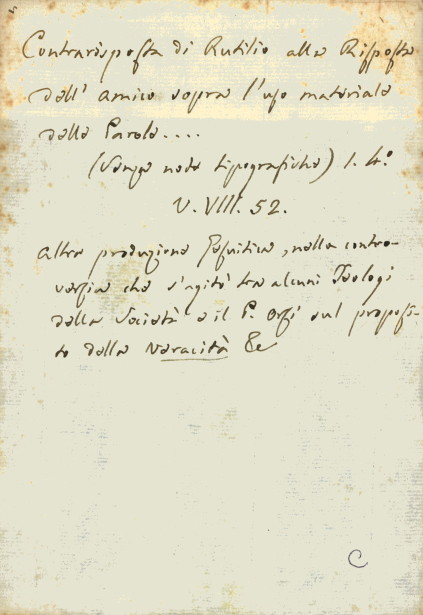 Contrarisposta di Rutilio alla Risposta
dell' amico sopra l'uso materiale
delle Parole....
(Senza note tipografiche) 1. 4.º
V. VIII. 52.
Altra produzione Gesuitica, nella contro-
versia che s'agitò tra alcuni Teologi
della Società e il P. Orsi sul proposi-
to della veracità &c
C